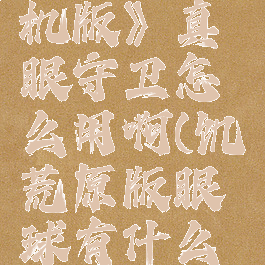 机版》真
眼守卫怎
么用啊(饥
荒原版眼
球有什么